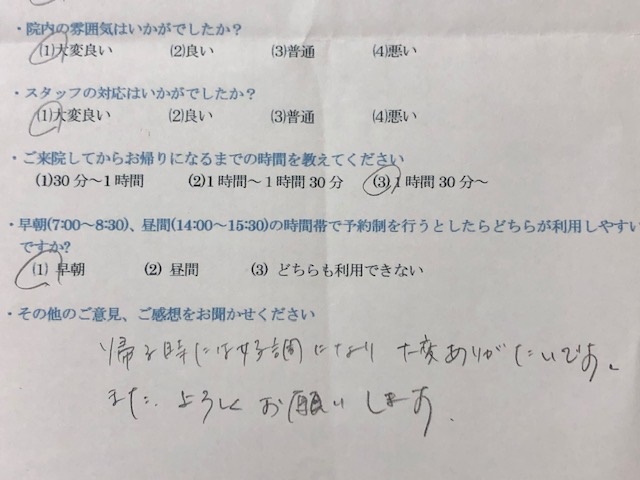 ・院内の雰囲気はいかがでしたか？
(1)大変良い (2)良い (3)普通 (4)悪い
・スタッフの対応はいかがでしたか？
(1)大変良い (2)良い (3)普通 (4)悪い
・ご来院してからお帰りになるまでの時間を教えてください
(1)30分～1時間 (2)1時間～1時間30分 (3)1時間30分～
・早朝(7:00～8:30)、昼間(14:00～15:30)の時間帯で予約制を行うとしたらどちらが利用しやすい
ですか?
(1) 早朝 (2) 昼間 (3) どちらも利用できない
・その他のご意見、ご感想をお聞かせください
帰る時には好調になり大変ありがたいです。
また、よろしくお願いします。